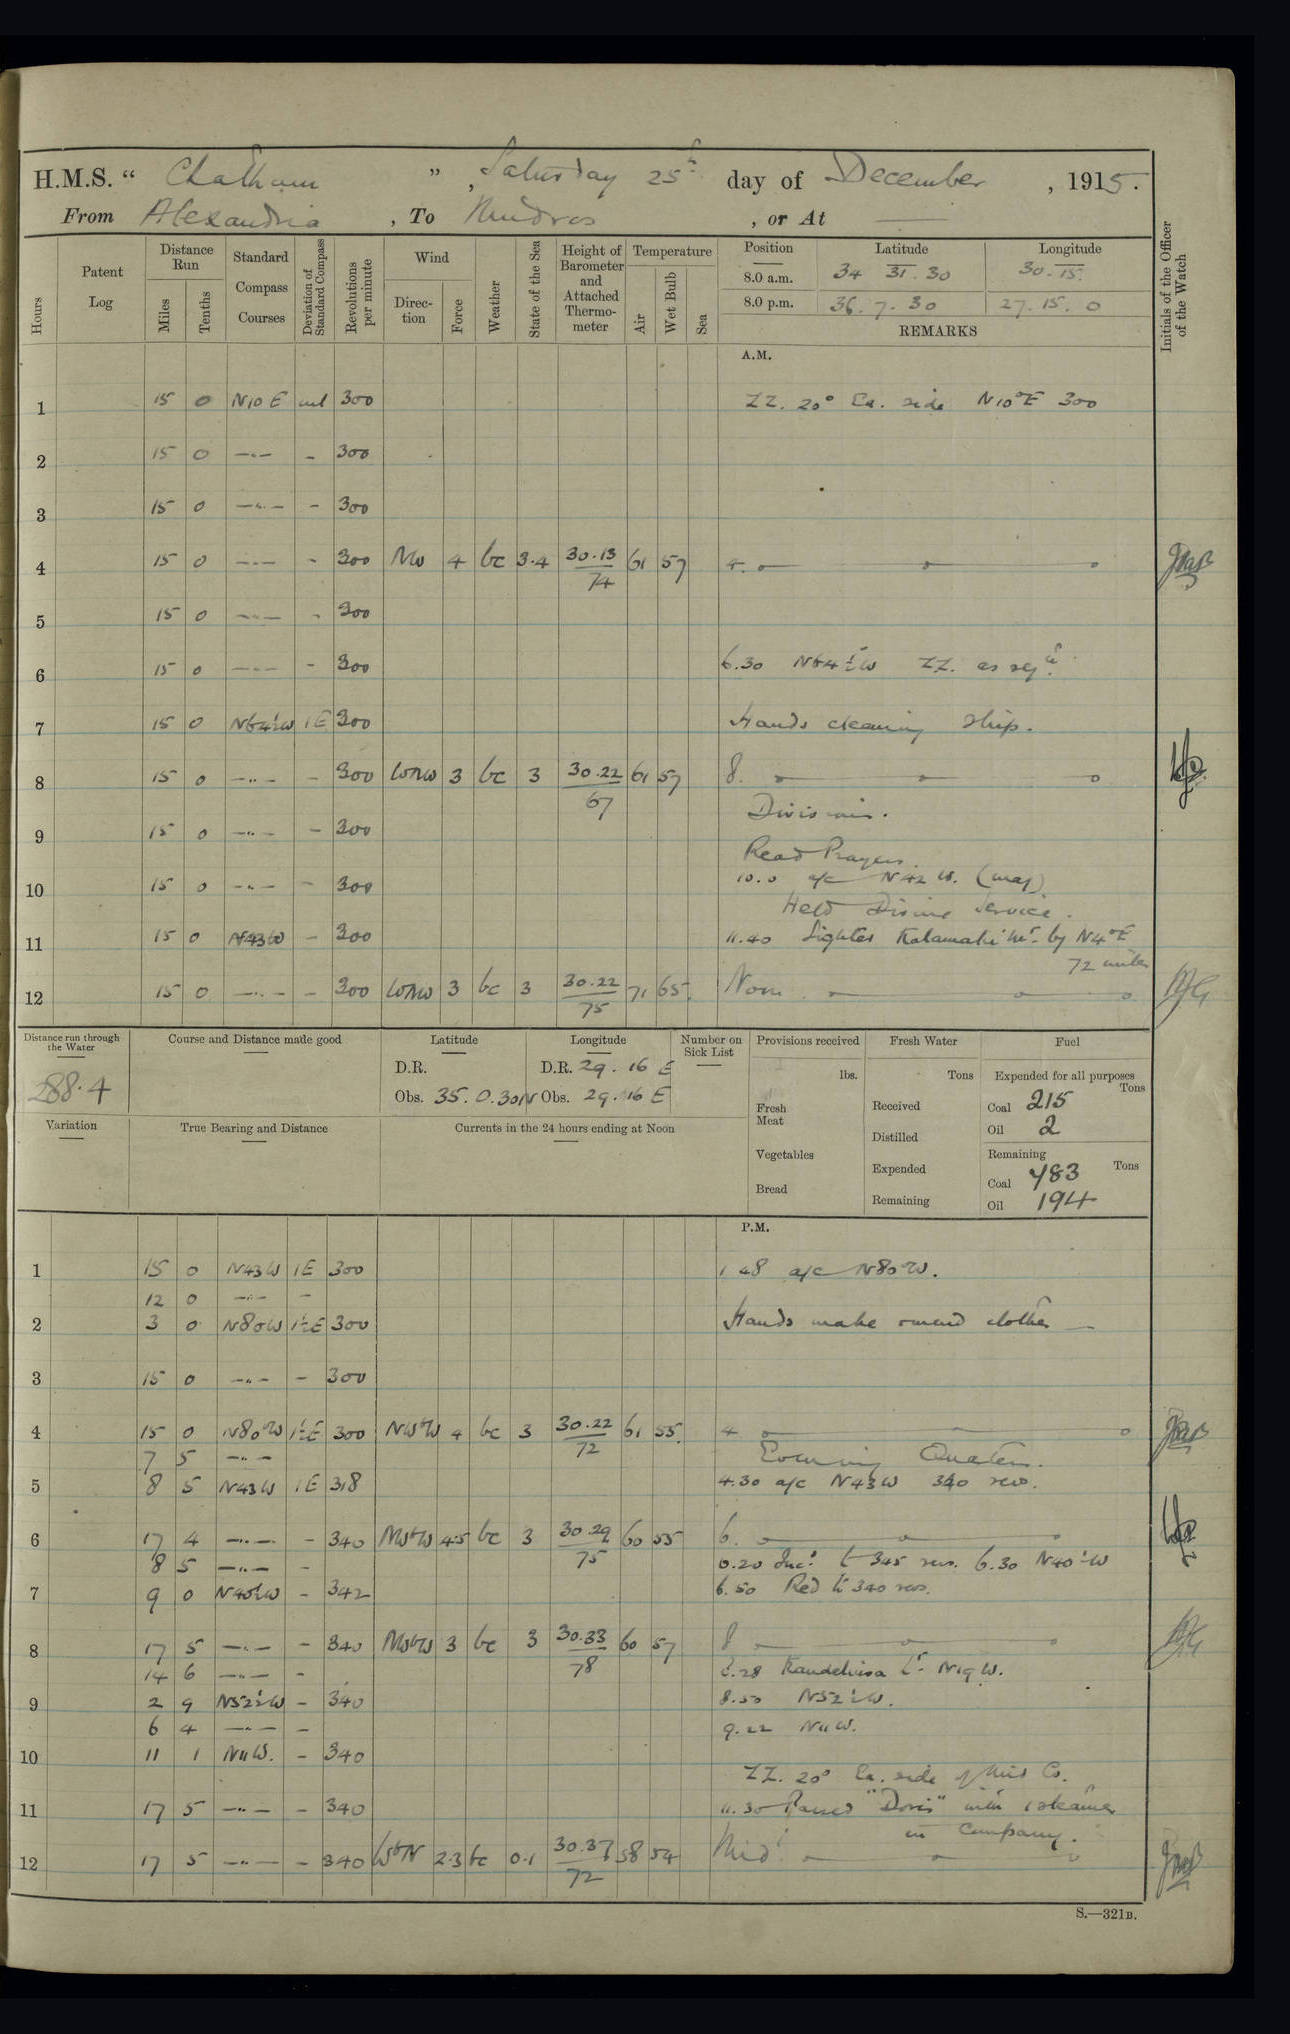 H.M.S. “ Chatham ”, Saturday 25th day of December, 1915.
From Alexandria, To Mudros, or At ——
Hours Patent Log Distance Run Miles Tenths Standard Compass Courses Deviation of Standard Compass Revolutions per minute Wind Direction Force Weather State of the Sea Height of Barometer and Attached Thermometer Temperature Air Wet Bulb Sea Position Latitude Longitude Initials of the Officer of the Watch
8.0 a.m. 34 31.30 30.15
8.0 p.m. 36.7.30 27.15.0
REMARKS
A.M.
1 15 0 N10E nil 300 ZZ. 20° Ea. side N10°E 300
2 15 0 —"— - 300
3 15 0 —"— - 300
4 15 0 —"— - 300 NW 4 bc 3.4 30.13 74 61 57 4.
5 15 0 —"— - 300
6 15 0 —"— - 300 6.30 N64½W ZZ. as reqd.
7 15 0 N64½W 1E 300 Hands cleaning ship.
8 15 0 —"— - 300 WNW 3 bc 3 30.22 67 61 57 8.
Divisions.
9 15 0 —"— - 300
Read Prayers.
10 15 0 —"— - 300 10.0 a/c N42W. (mag)
Held Divine Service.
11 15 0 N43W - 300 11.40 Sighted Kalamaki Mt. by N4°E
72 miles
12 15 0 —"— - 300 WNW 3 bc 3 30.22 75 71 65. Noon.
Distance run through the Water Course and Distance made good Latitude Longitude Number on Sick List Provisions received Fresh Water Fuel
288.4 D.R. D.R. 29.16 E lbs. Tons Expended for all purposes Tons
Obs. 35.0.30N Obs. 29.16 E Fresh Meat Received Coal 215
Oil 2
Variation True Bearing and Distance Currents in the 24 hours ending at Noon Distilled
Vegetables Expended Remaining Tons
Coal 483
Bread Remaining Oil 194
P.M.
1 15 0 N43W 1E 300 1 48 a/c N80W.
12 0 —"— -
2 3 0 N80W 1½E 300 Hands make & mend clothes
3 15 0 —"— - 300
4 15 0 N80W 1½E 300 NWbW 4 bc 3 30.22 72 61 55. 4
7 5 —"— Evening Quarters.
5 8 5 N43W 1E 318 4.30 a/c N43W 340 revs.
6 17 4 —"— - 340 NWbW 4.5 bc 3 30.29 75 60 55 6.
8 5 —"— - 6.20 Incd. to 345 revs. 6.30 N40½W
7 9 0 N40½W - 342 6.50 Red to 340 revs.
8 17 5 —"— - 340 NWbW 3 bc 3 30.33 78 60 57 8
14 6 —"— - 8.28 Kandeliusa Lt. N19W.
9 2 9 N52½W - 340 8.50 N52½W.
6 4 —"— - 9.22 N11W.
10 11 1 N11W. - 340
ZZ. 20° Ea. side of Mid Co.
11 17 5 —"— - 340 11.30 Passed "Doris" with 1 steamer
in Company.
12 17 5 —"— - 340 WbN 2.3 bc 0.1 30.37 72 58 54 Midt.
S.—321B.